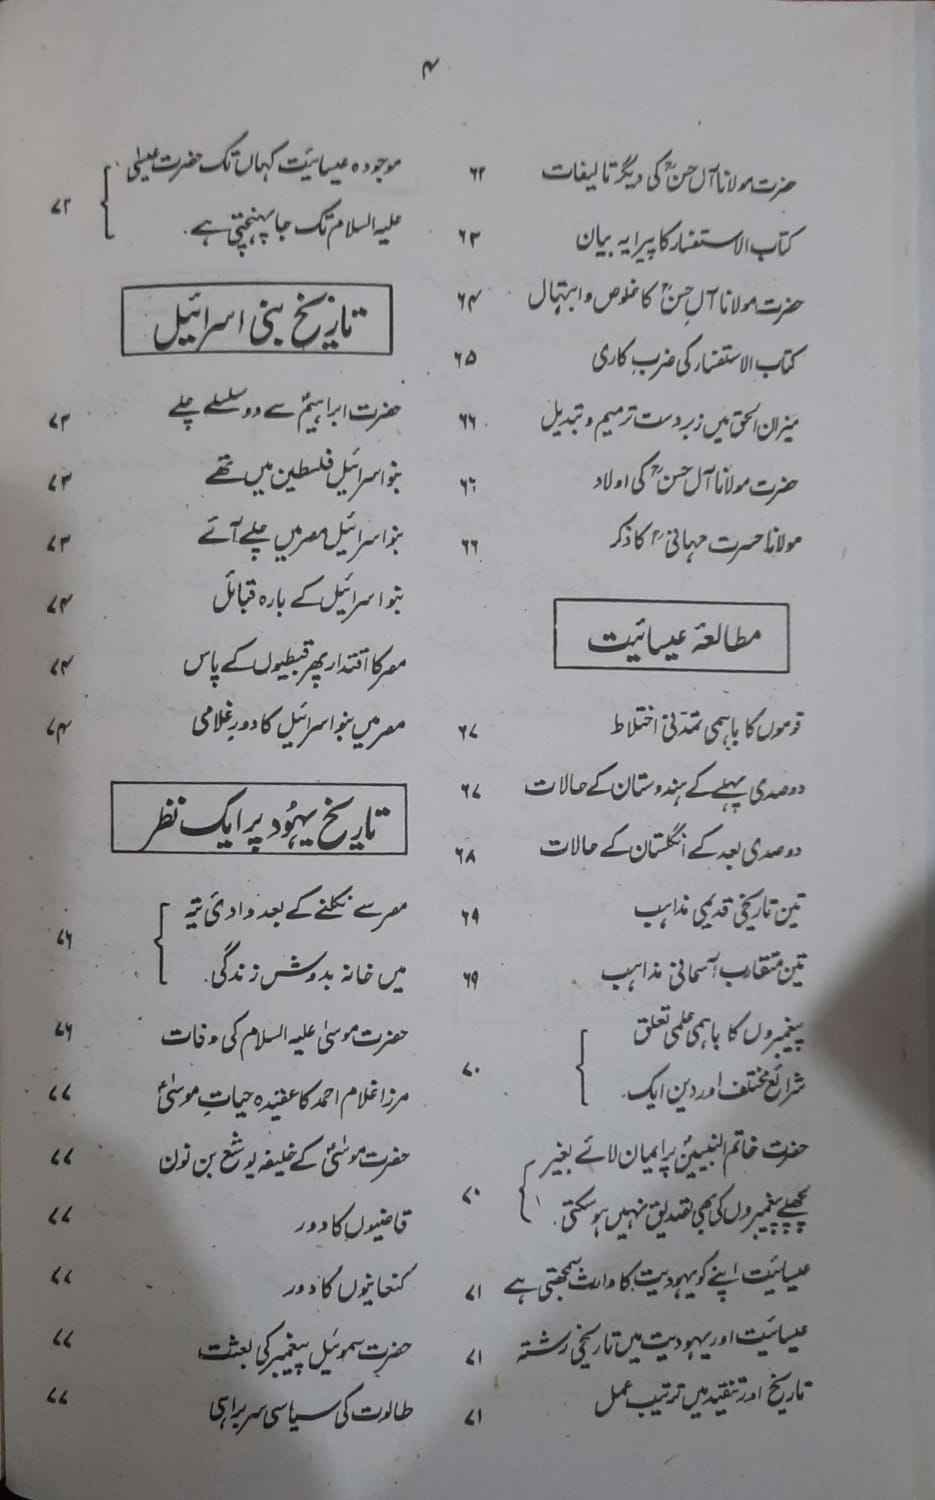 ۴
حضرت مولانا آل حسنؒ کی دیگر تالیفات ۶۲
کتاب الاستفسار کا پیرایہ بیان ۶۳
حضرت مولانا آل حسنؒ کا خلوص و ابتہال ۶۴
کتاب الاستفسار کی ضرب کاری ۶۵
میزان الحق میں زبردست ترمیم و تبدیل ۶۶
حضرت مولانا آل حسنؒ کی اولاد ۶۶
مولانا حسرت مہانیؒ کا ذکر ۶۶
مطالعۂ عیسائیت
قوموں کا باہمی تمدنی اختلاط ۶۷
دو صدی پہلے کے ہندوستان کے حالات ۶۷
دو صدی بعد کے انگلستان کے حالات ۶۸
تین تاریخی قدیمی مذاہب ۶۹
تین متقارب آسمانی مذاہب ۶۹
پیغمبروں کا باہمی علمی تعلق
شرائع مختلف اور دین ایک۔ ۷۰
حضرت خاتم النبیینؐ پر ایمان لائے بغیر
پچھلے پیغمبروں کی بھی تصدیق نہیں ہو سکتی۔ ۷۰
عیسائیت اپنے کو یہودیت کا وارث سمجھتی ہے ۷۱
عیسائیت اور یہودیت میں تاریخی رشتہ ۷۱
تاریخ اور تنقید میں ترتیب عمل ۷۱
موجودہ عیسائیت کہاں تک حضرت عیسیٰ
علیہ السلام تک جا پہنچتی ہے۔ ۷۲
تاریخ بنی اسرائیل
حضرت ابراہیمؑ سے دو سلسلے چلے ۷۳
بنو اسرائیل فلسطین میں تھے ۷۳
بنو اسرائیل مصر میں چلے آئے ۷۳
بنو اسرائیل کے بارہ قبائل ۷۴
مصر کا اقتدار پھر قبطیوں کے پاس ۷۴
مصر میں بنو اسرائیل کا دورِ غلامی ۷۴
تاریخ یہُود پر ایک نظر
مصر سے نکلنے کے بعد وادئ تیہ
میں خانہ بدوش زندگی۔ ۷۶
حضرت موسیٰ علیہ السلام کی وفات ۷۶
مرزا غلام احمد کا عقیدہ حیاتِ موسیٰؑ ۷۷
حضرت موسیٰؑ کے خلیفہ یوشع بن نون ۷۷
قاضیوں کا دور ۷۷
کنعانیوں کا دور ۷۷
حضرت سموئیل پیغمبر کی بعثت ۷۷
طالوت کی سیاسی سربراہی ۷۷